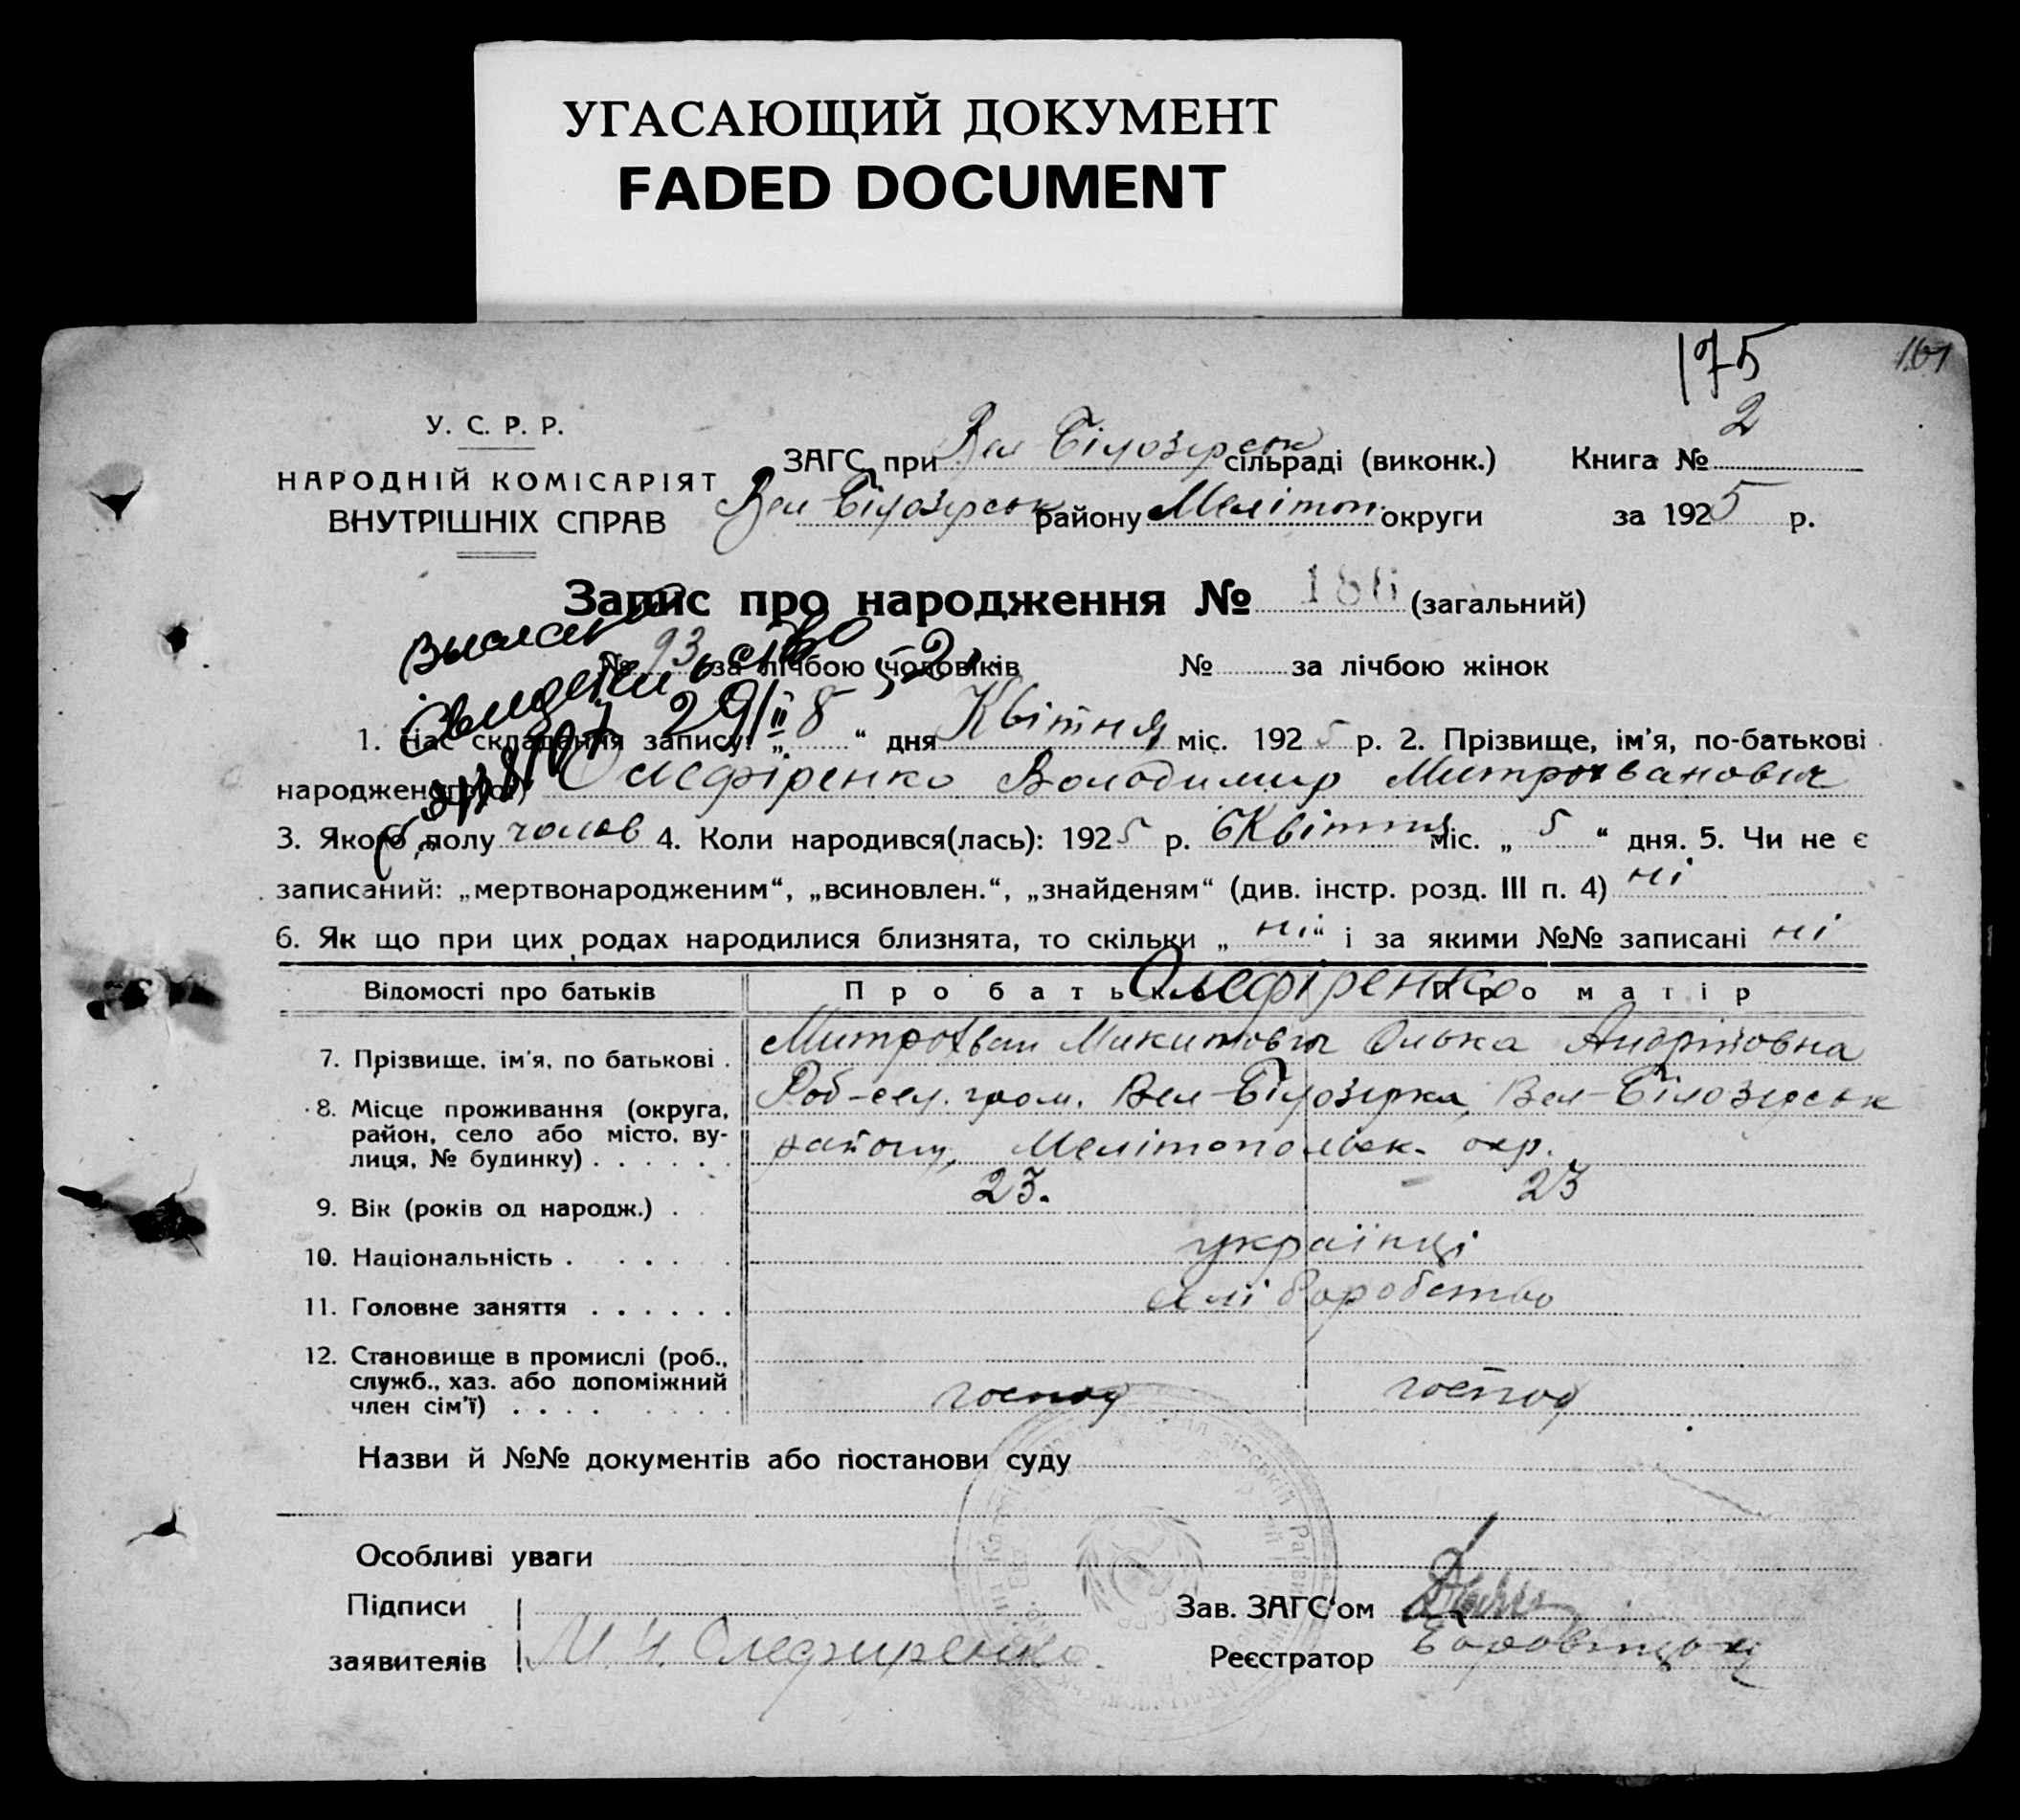 УГАСАЮЩИЙ ДОКУМЕНТ
FADED DOCUMENT
175
161
У. С. Р. Р.
НАРОДНІЙ КОМІСАРІЯТ
ВНУТРІШНІХ СПРАВ
ЗАГС при Вел Білозерськ сільраді (виконк.) Книга № 2
Вел Білозерськ району Мелітоп. округи за 1925 р.
Запис про народження № 186 (загальний)
№ 93 за лічбою чоловіків № за лічбою жінок
1. Час складання запису: „ 8 “ дня Квітня міс. 1925 р. 2. Прізвище, ім'я, по-батькові
народженого(ої) Олефіренко Володимир Митрохванович
3. Якого полу чолов 4. Коли народився(лась): 1925 р. Квітня міс. „ 5 “ дня. 5. Чи не є
записаний: „мертвонародженим“, „всиновлен.“, „знайденям“ (див. інстр. розд. III п. 4) ні
6. Як що при цих родах народилися близнята, то скільки „ ні “ і за якими №№ записані ні
Відомості про батьків Про батька Про матір
Олефіренко
7. Прізвище, ім'я, по батькові . Митрохван Микитович Олька Андріївна
8. Місце проживання (округа, Роб-сел. гром. Вел-Білозерка, Вел-Білозерськ
район, село або місто, ву-
лиця, № будинку) . . . . . . району, Мелітопольськ. окр.
9. Вік (років од народж.) . 23. 23
10. Національність . . . . . українці
11. Головне заняття . . . . . . хліборобство
12. Становище в промислі (роб.,
служб., хаз. або допоміжний
член сім'ї) . . . . господ господ
Назви й №№ документів або постанови суду
Особливі уваги
Підписи Зав. ЗАГС'ом
заявителів М. Н. Олефиренко. Реєстратор